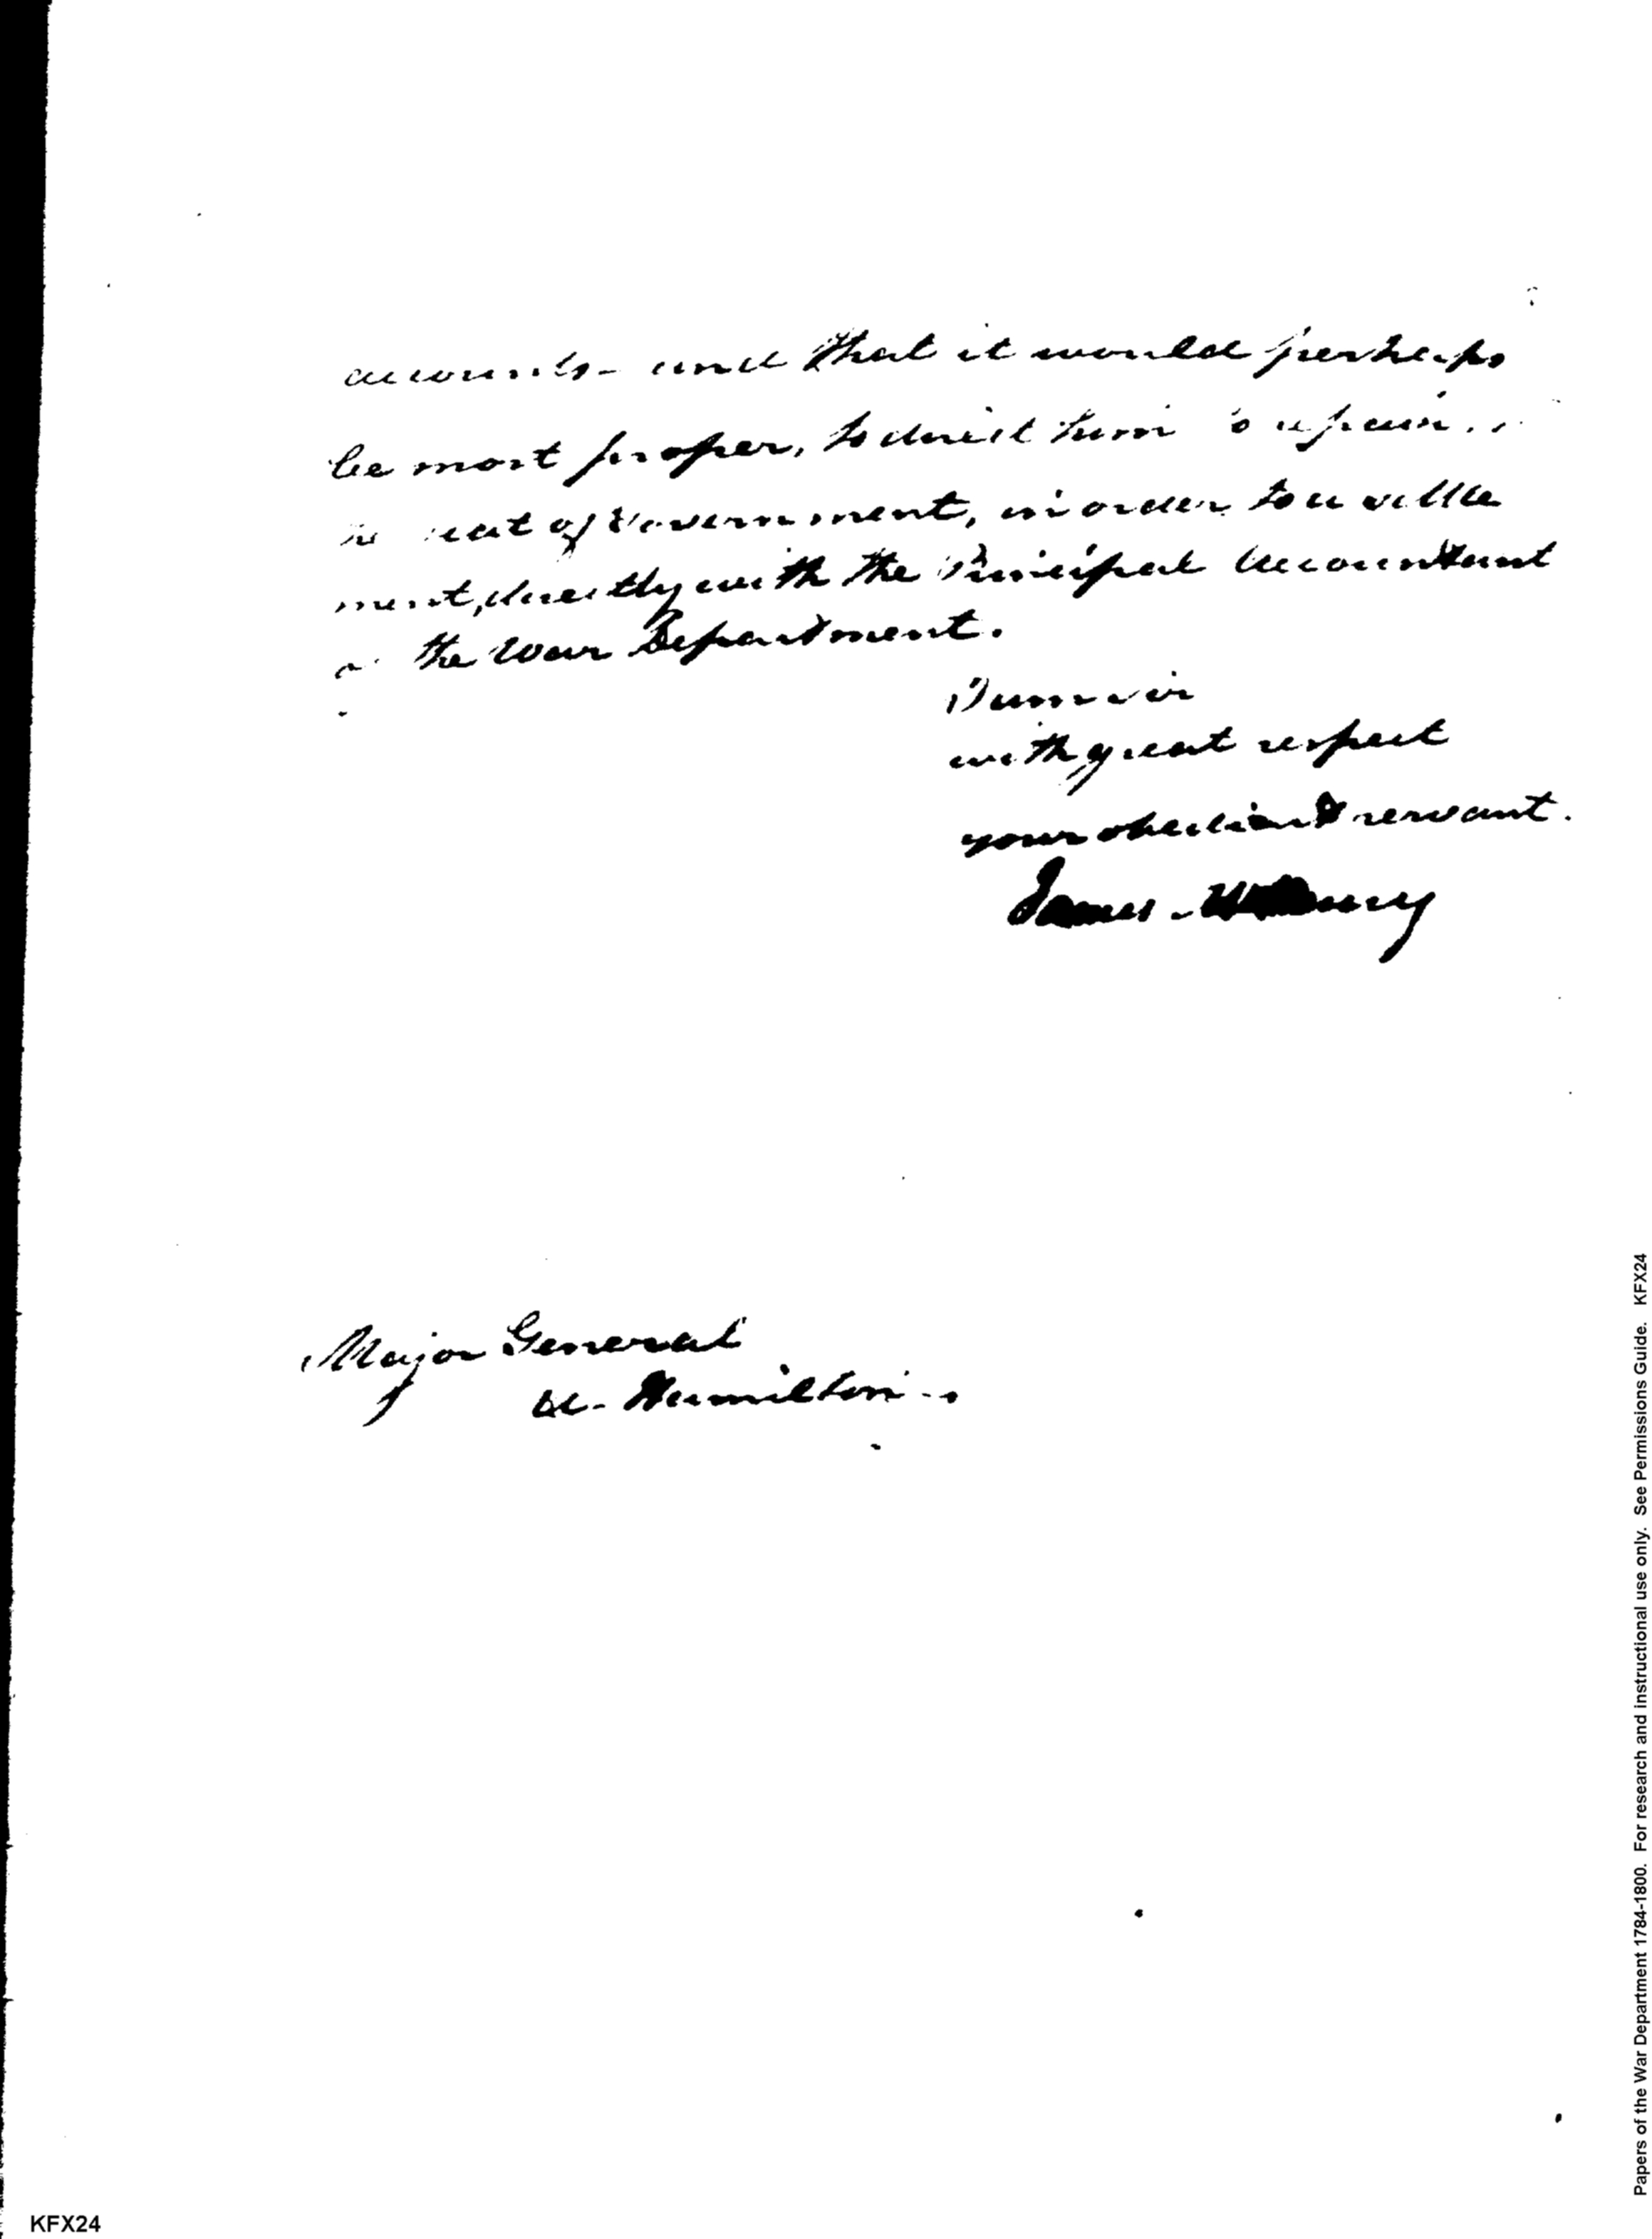 accounts - and that it would perhaps
be most proper, to direct him to repair to
seat of Government, in order to a settle
ment, directly with the Principal Accountant
of the War Department.
I am sir
with great respect
your obedient servant.
James McHenry
Major General
A. Hamilton
Papers of the War Department 1784-1800. For research and instructional use only. See Permissions Guide. KFX24
KFX24